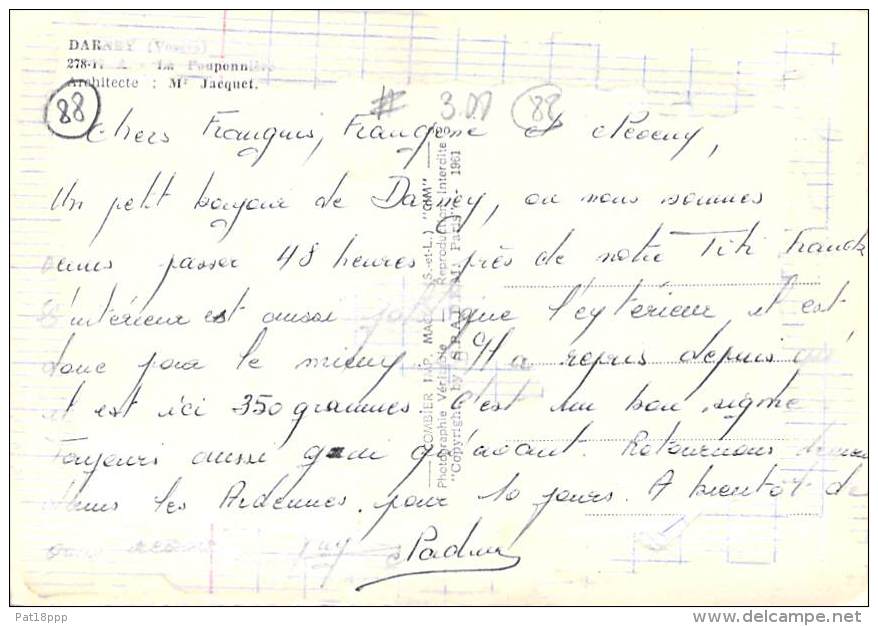 DARNEY (Vosges)
278-17 A - La Pouponnière
Architecte : Mr Jacquet.
88
# 3.01 88
Chers François, Françoise et
Un petit bonjour de Darney, où nous sommes
venus passer 48 heures près de notre Titi Franck
L'intérieur est aussi joli que l'extérieur, il est
donc pour le mieux. Il a repris depuis qu'
il est ici 350 grammes. C'est un bon signe
Toujours aussi gai qu'avant. Retournons
dans les Ardennes pour 10 jours. A bientôt de
vous
COMBIER IMP. MACON (S.-et-L.) "CIM"
Photographie Véritable - Reproduction Interdite
"Copyright by S.P.A.D.E.M. Paris" - 1961
Pat18ppp
www.delcampe.net